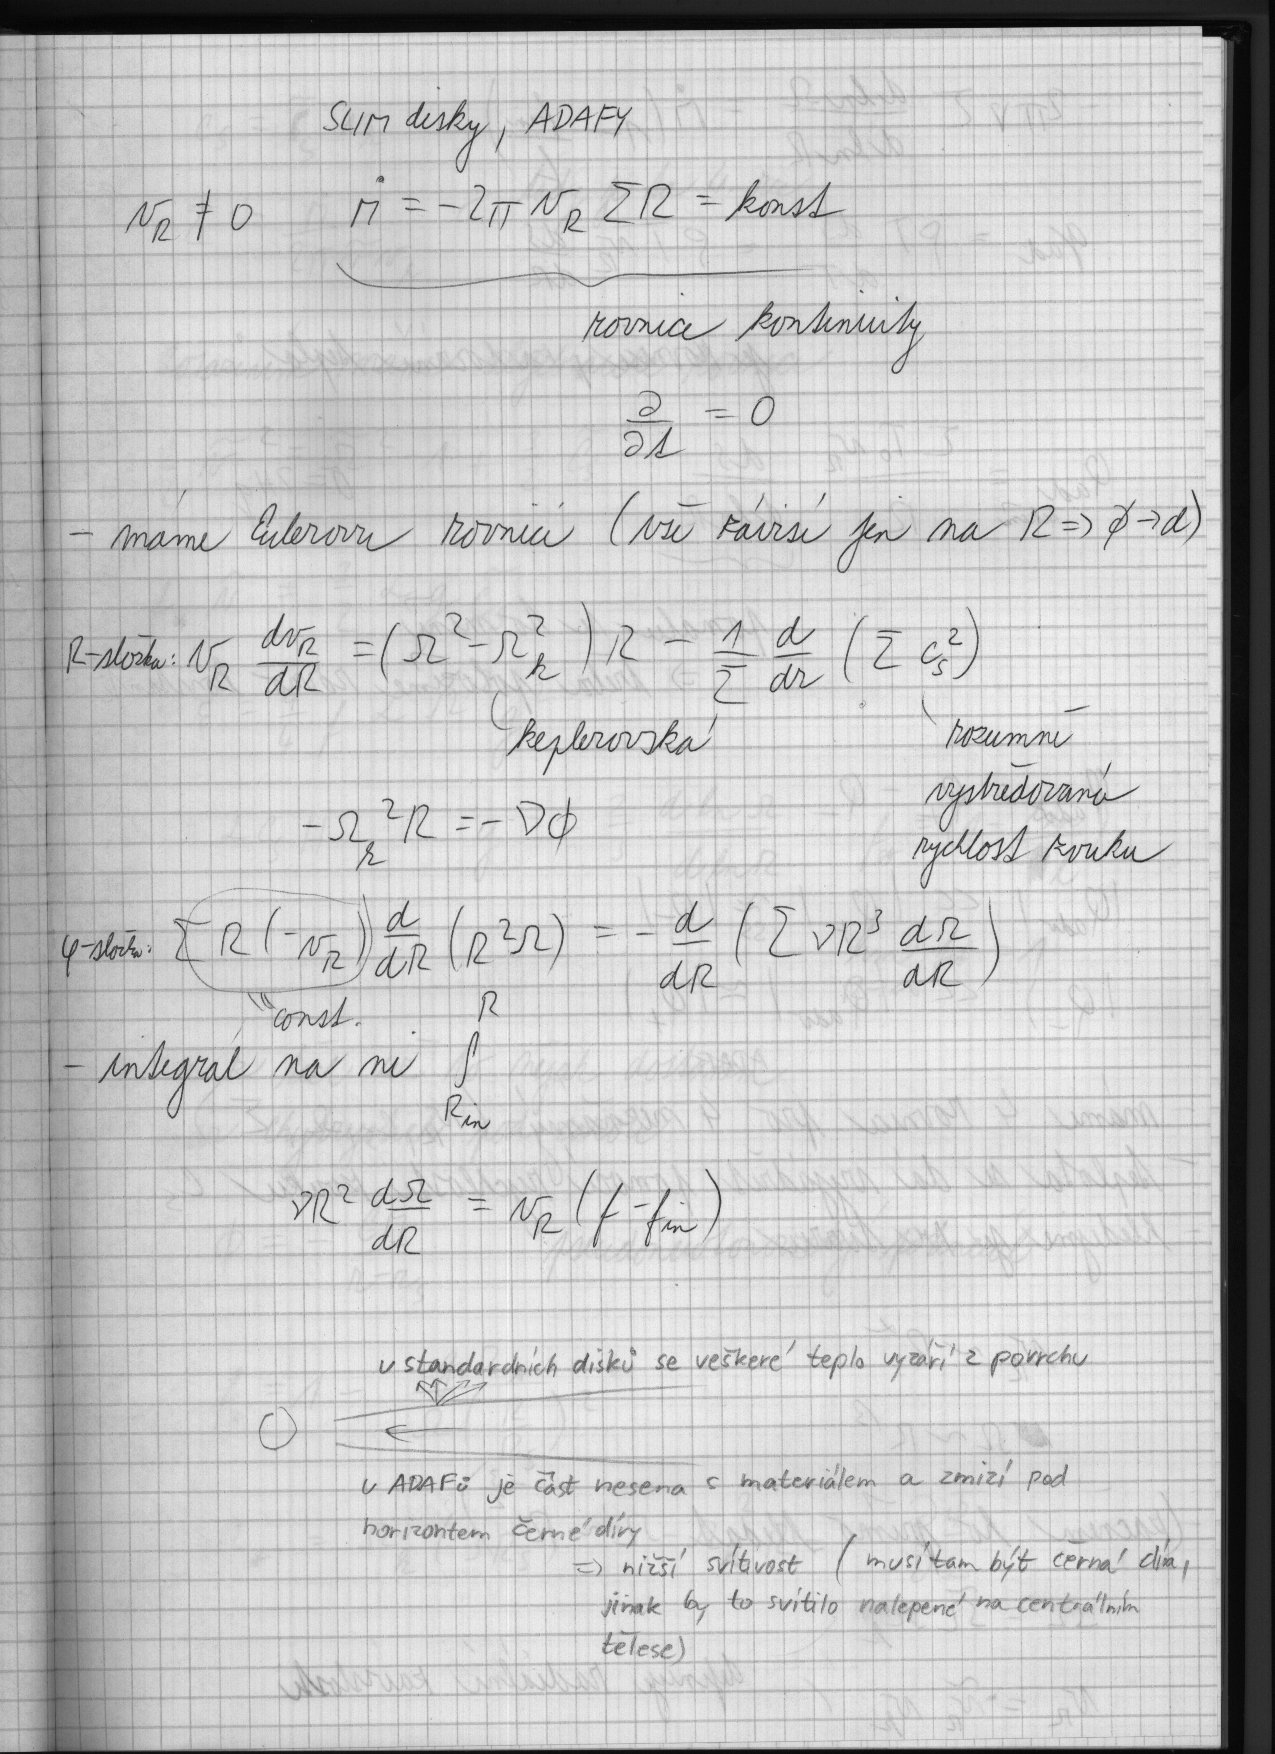 SLIM disky, ADAFY
v_R ≠ 0 Ṁ = -2π v_R Σ R = konst
rovnice kontinuity
∂/∂t = 0
- máme Eulerovu rovnici (vše závisí jen na R => ∂ -> d)
R-složka: v_R dv_R/dR = (Ω² - Ω_k²) R - 1/Σ d/dr (Σ c_s²)
keplerovská
rozumně
vystředovaná
rychlost zvuku
-Ω_k² R = -∇ϕ
φ-složka: Σ R (-v_R) d/dR (R²Ω) = - d/dR (Σ ν R³ dΩ/dR)
const.
- integrál na ni ∫_{R_in}^{R}
νR² dΩ/dR = v_R (f - f_in)
u standardních disků se veškeré teplo vyzáří z povrchu
u ADAFů je část nesena s materiálem a zmizí pod
horizontem černé díry
=> nižší svítivost (musí tam být černá díra,
jinak by to svítilo nalepené na centrálním
tělese)